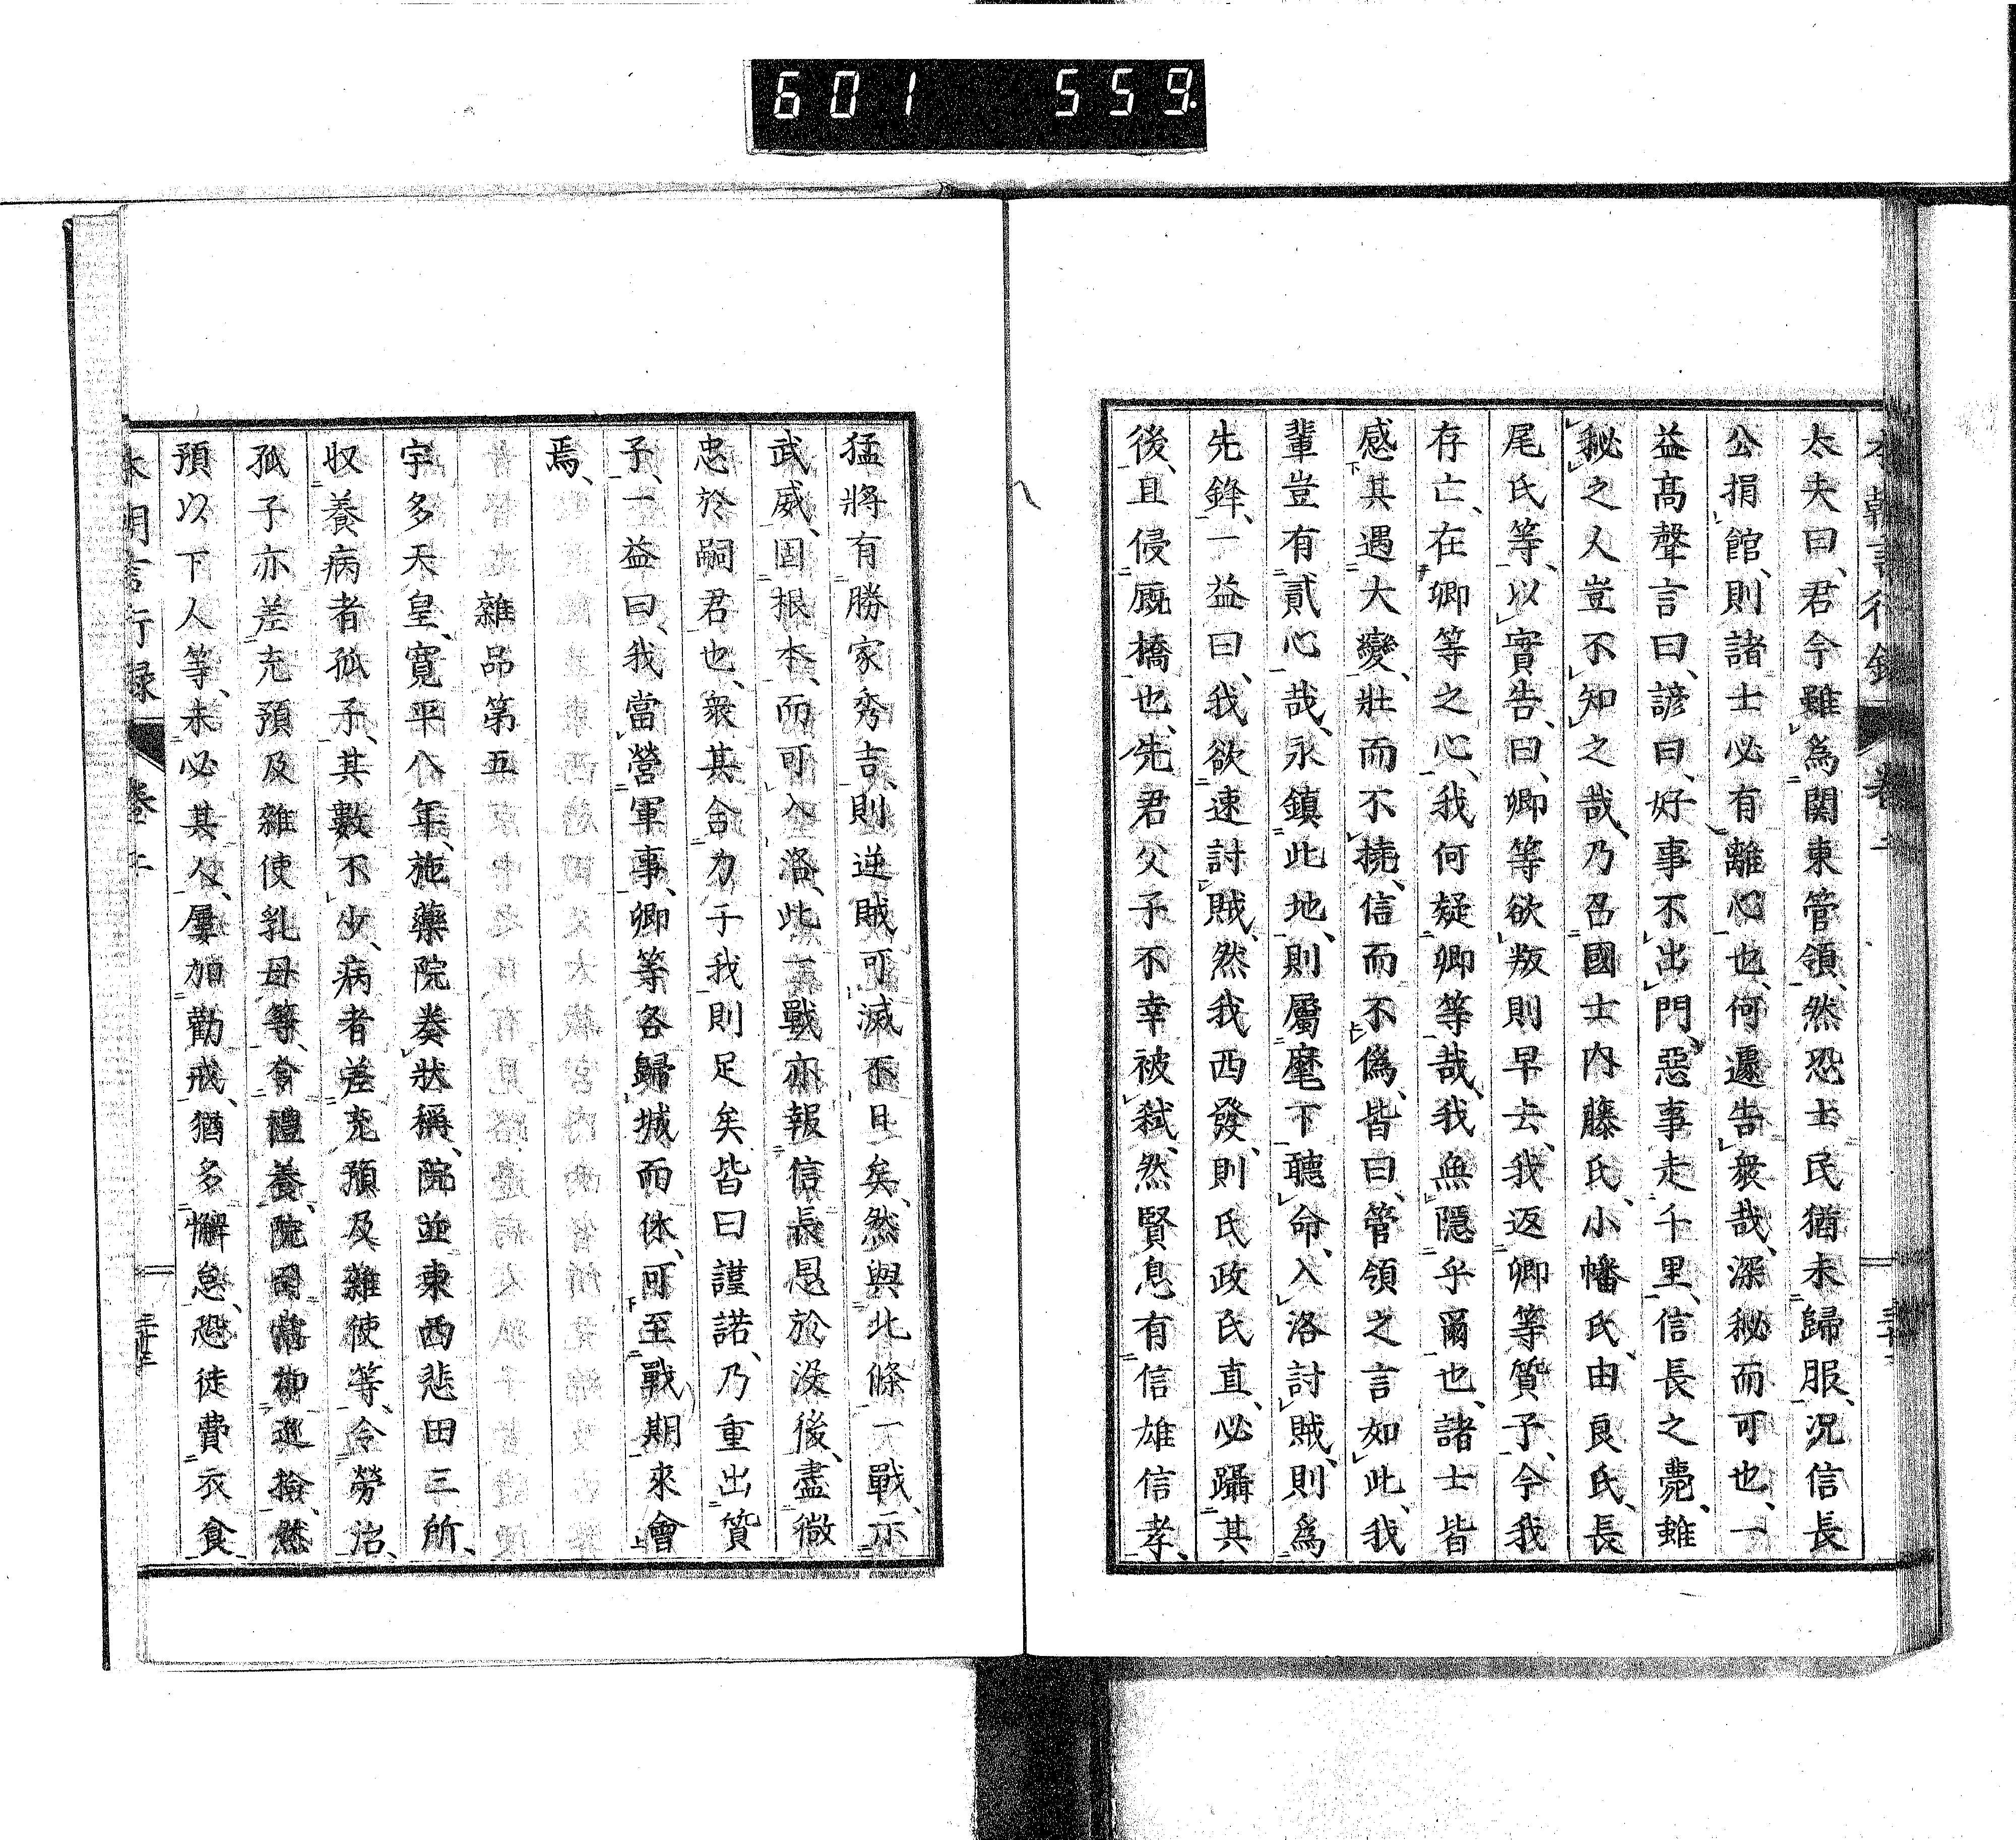 601 559.
本朝言行録 卷二
太夫曰、君今雖為関東管領、然恐士民猶未歸服、况信長
公捐館、則諸士必有離心也、何遽告衆哉、深秘而可也、一
益高聲言曰、諺曰、好事不出門、惡事走千里、信長之薨、雖
秘之人豈不知之哉、乃召國士内藤氏、小幡氏、由良氏、長
尾氏等、以實告、曰、卿等欲叛則早去、我返卿等質子、令我
存亡、在卿等之心、我何疑卿等哉、我無隠乎爾也、諸士皆
感其遇大變、壯而不撓、信而不偽、皆曰、管領之言如此、我
輩豈有貳心哉、永鎮此地、則屬麾下聽命、入洛討賊、則為
先鋒、一益曰、我欲速討賊、然我西發、則氏政氏直、必躡其
後、且侵廐橋也、先君父子不幸被弑、然賢息有信雄信孝、
猛將有勝家秀吉、則逆賊可滅不日矣、然與北條一戰、示
武威、固根本、而可入洛、此一戰亦報信長恩於沒後、盡微
忠於嗣君也、衆其合力于我則足矣、皆曰謹諾、乃重出質
子、一益曰、我當營軍事、卿等各歸城而休、可至戰期來會
焉、
雜品第五
宇多天皇、寛平八年、施藥院奏狀稱、院並東西悲田三所、
収養病者孤子、其數不少、病者差充預及雜使等、令勞治、
孤子亦差充預及雜使乳母等、令禮養、院司常加巡撿、然
預以下人等、未必其人、屢加勸戒、猶多懈怠、恐徒費衣食
本朝言行録 卷二 三十三